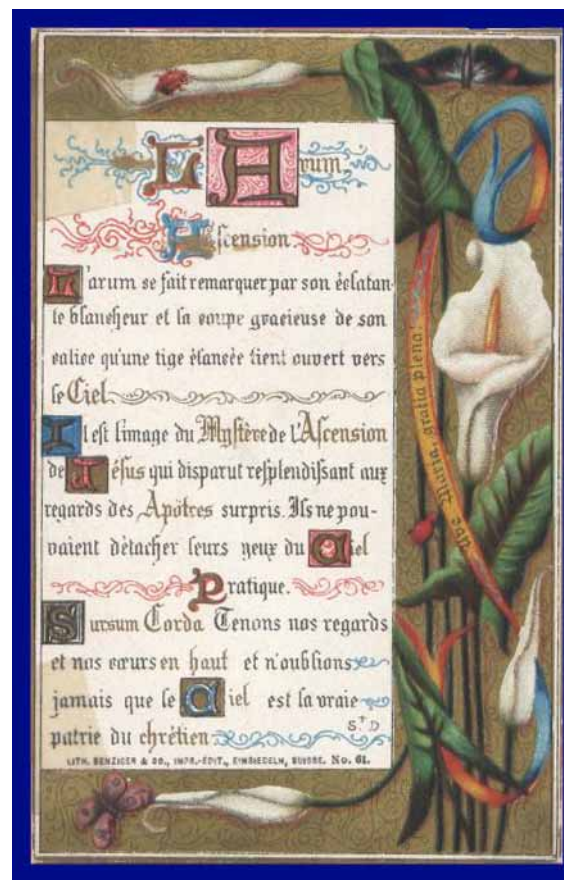 L'Arum,
Ascension.
L'arum se fait remarquer par son éclatan-
te blancheur et la coupe gracieuse de son
calice qu'une tige élancée tient ouvert vers
le Ciel
Il est l'image du Mystère de l'Ascension
de Jésus qui disparut resplendissant aux
regards des Apôtres surpris. Ils ne pou-
vaient détacher leurs yeux du Ciel
Pratique.
Sursum Corda Tenons nos regards
et nos cœurs en haut et n'oublions
jamais que le Ciel est la vraie
patrie du chrétien
S.^t D
LITH. BENZIGER & CO., IMPR.-ÉDIT., EINSIEDELN, SUISSE. No. 61.
ave Maria, gratia plena!